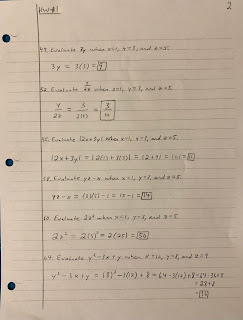 HW#1
2
49. Evaluate 3y when x=1, y=3, and z=5.
3y = 3(3) = 9
52. Evaluate y/2z when x=1, y=3, and z=5.
y/2z = 3/2(5) = 3/10
55. Evaluate |2x+3y| when x=1, y=3, and z=5.
|2x+3y| = |2(1)+3(3)| = |2+9| = |11| = 11
58. Evaluate yz-x when x=1, y=3, and z=5.
yz-x = (3)(5)-1 = 15-1 = 14
60. Evaluate 2z² when x=1, y=3, and z=5.
2z² = 2(5)² = 2(25) = 50
64. Evaluate y²-3x+y when x=12, y=8, and z=9
y²-3x+y = (8)²-3(12)+8 = 64-3(12)+8 = 64-36+8
= 28+8